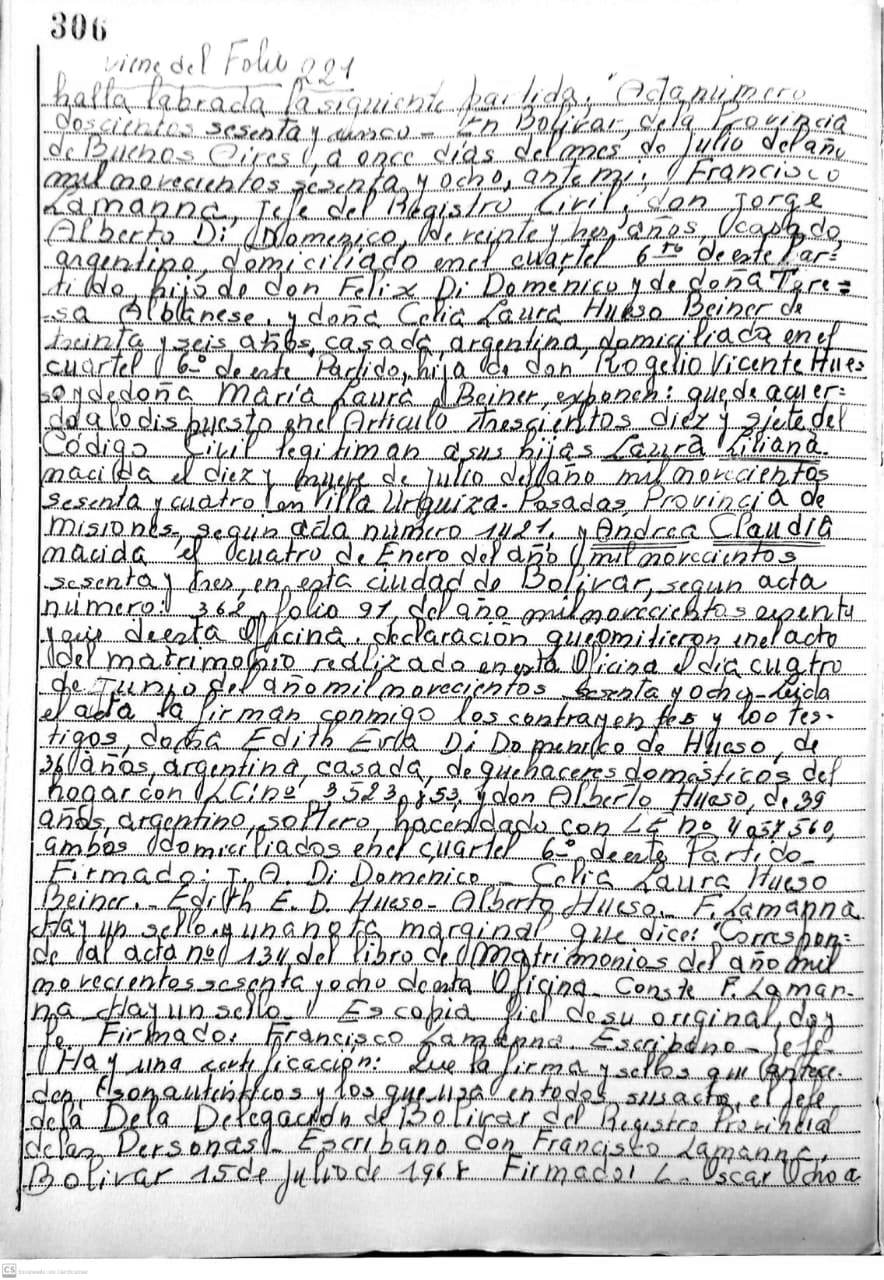 306
viene del Folio 221
halla labrada la siguiente partida: "Acta número
doscientos sesenta y cinco - En Bolívar, de la Provincia
de Buenos Aires, a once días del mes de Julio del año
mil novecientos sesenta y ocho, ante mi; Francisco
Lamanna, Jefe del Registro Civil, don Jorge
Alberto Di Domenico, de veinte y tres años, casado,
argentino, domiciliado en el cuartel 6to de este Par=
tido, hijo de don Felix Di Domenico y de doña Tere=
sa Albanese, y doña Celia Laura Hueso Beiner de
treinta y seis años, casada, argentina, domiciliada en el
cuartel 6º de este Partido, hija de don Rogelio Vicente Hues
so y de doña María Laura Beiner, exponen: que de acuer=
do a lo dispuesto en el Artículo trescientos diez y siete del
Código Civil legitiman a sus hijas Laura Liliana
nacida el diez y nueve de Julio del año mil novecientos
sesenta y cuatro en Villa Urquiza - Posadas, Provincia de
misiones - según acta número 1421, y Andrea Claudia
nacida el cuatro de Enero del año mil novecientos
sesenta y tres, en esta ciudad de Bolívar, segun acta
número: 362, folio 91, del año mil novecientos
de esta Oficina, declaración que omitieron en el acto
del matrimonio realizado en esta Oficina el día cuatro
de Junio del año mil novecientos sesenta y ocho - Leida
el acta la firman conmigo los contrayentes y los tes-
tigos, doña Edith Erla Di Domenico de Hueso, de
36 años, argentina, casada, de quehaceres domésticos del
hogar con LC nº 3523,853, y don Alberto Hueso, de 39
años, argentino, soltero, hacendado con LE nº
ambos domiciliados en el cuartel 6º de este Partido -
Firmado: J. A. Di Domenico - Celia Laura Hueso
Beiner. - Edith E. D. Hueso - Alberto Hueso - F. Lamanna
Hay un sello y una nota marginal que dice: "Correspon=
de al acta nº 134 del libro de Matrimonios del año mil
novecientos sesenta y ocho de esta Oficina - Conste F. Laman-
na - Hay un sello - Es copia fiel de su original, doy
fe. Firmado: Francisco Lamanna. Escribano - Jefe -
Hay una certificación: Que la firma y sellos que antece-
den, son auténticos y los que usa en todos sus actos, el Jefe
de la Dela Delegación de Bolívar del Registro Provincial
de las Personas - Escribano don Francisco Lamanna,
Bolívar 15 de Julio de 1968 Firmado: L. Oscar Ochoa
CS